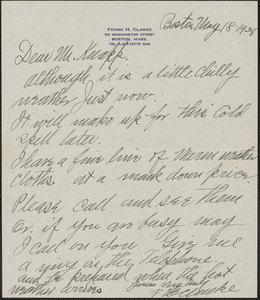 FRANK H. CLARKE
WASHINGTON STREET
BOSTON, MASS.
TEL. LAFAYETTE
Boston May 18 1938
Dear Mr. Knapp.
Although it is a little chilly
weather Just now.
It will make up for this cold
spell later.
I have a fine line of warm weather
cloths at a mark down price.
Please call and see them
Or. if you are busy may
I call on you. Give me
a ring on the Telephone
and be prepared when the hot
weather arrives Yours very truly
F H Clarke